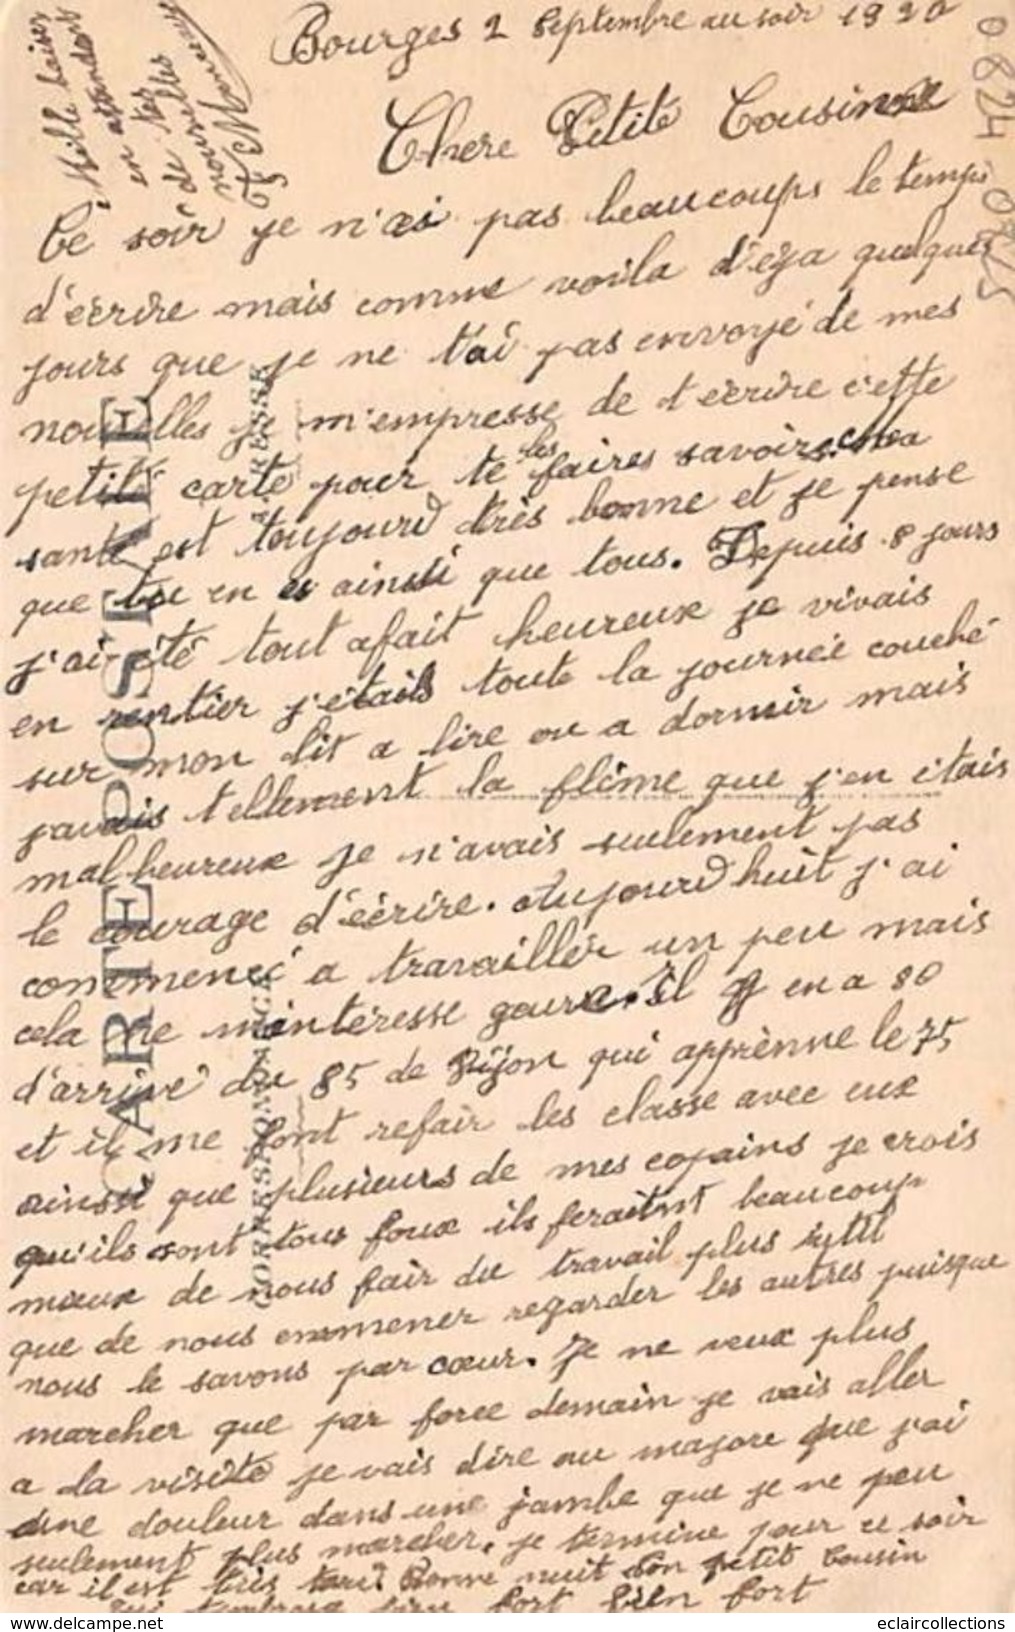 Bourges 2 Septembre au soir 1920
Chere Petite Cousine
Ce soir je n'ai pas beaucoups le temps
d'écrire mais comme voila d'eja quelques
jours que je ne t'ai pas envoyé de mes
nouvelles je m'empresse de t'ecrire cette
petite carte pour te les faires savoir ma
santé est toujourd très bonne et je pense
que tu en es ainsi que tous. Depuis 8 jours
j'ai été tout afait heureux je vivais
en rentier j'étais toute la journée couché
sur mon lit a lire ou a dormir mais
javais tellement la flème que j'en étais
malheureux je n'avais seulement pas
le courage d'écrire. Aujourd'huit j'ai
commencé a travailler un peu mais
cela ne m'intéresse goure. il y en a 80
d'arrivé du 85 de Dijon qui apprènne le 75
et il me font refair les classe avec eux
ainsi que plusieurs de mes copains je crois
qu'ils sont tous foux ils feraient beaucoup
mieux de nous fair du travail plus utill
que de nous emmener regarder les autres puisque
nous le savons par cœur. Je ne veux plus
marcher que par force demain je vais aller
a la visite je vais dire au majore que j'ai
une douleur dans une jambe que je ne peu
seulement plus marcher. je termine pour ce soir
car il est très tard Bonne nuit ton petit Cousin
qui t'embrasse bien fort bien fort
Mille baiser
en attendant
de tes
nouvelles
CARTE POSTALE
CORRESPONDANCE
ADRESSE
0824 0825
www.delcampe.net
eclaircollections